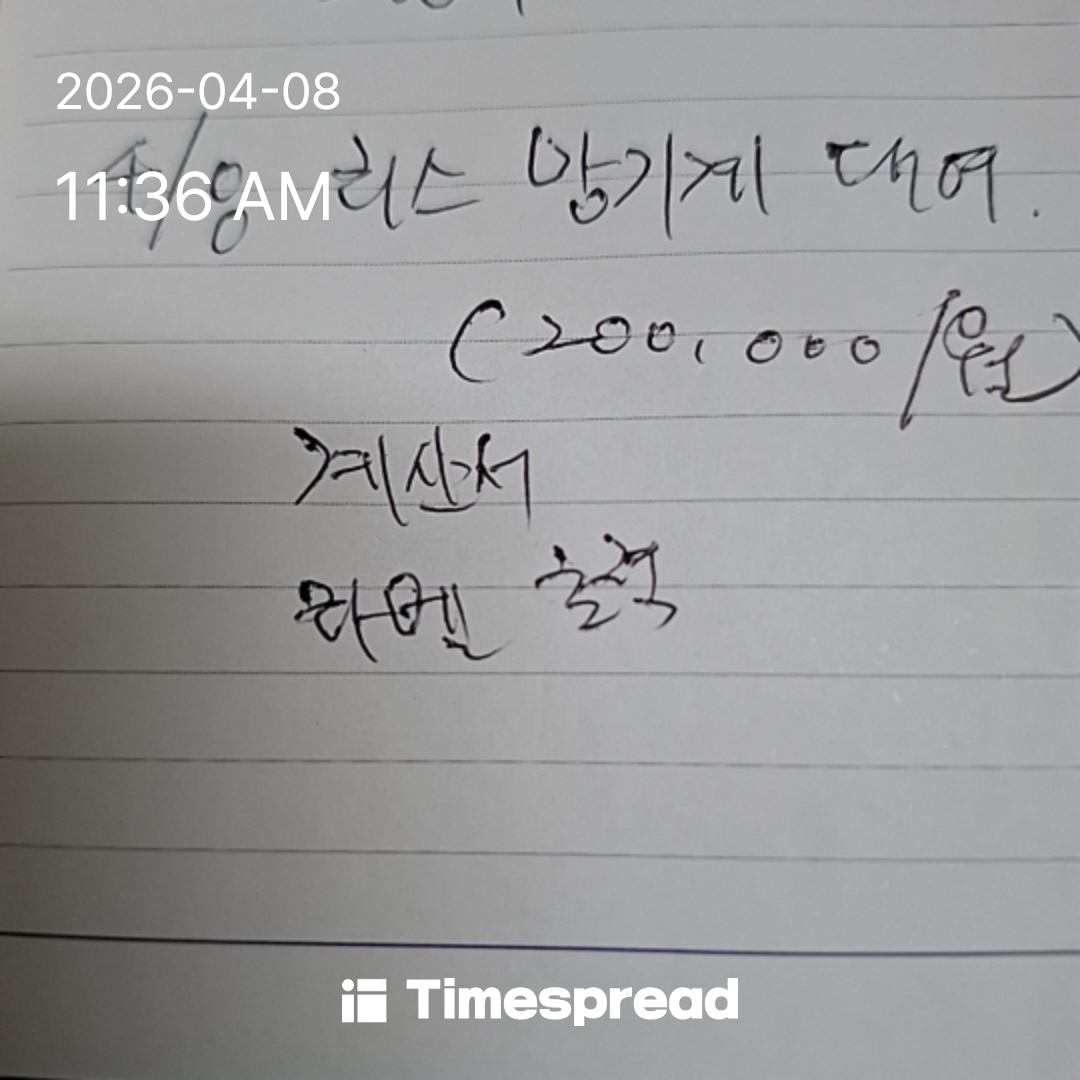 2026-04-08
11:36 AM
리스 망기계 대여.
(200,000/월)
계산서
라벨 출력
Timespread